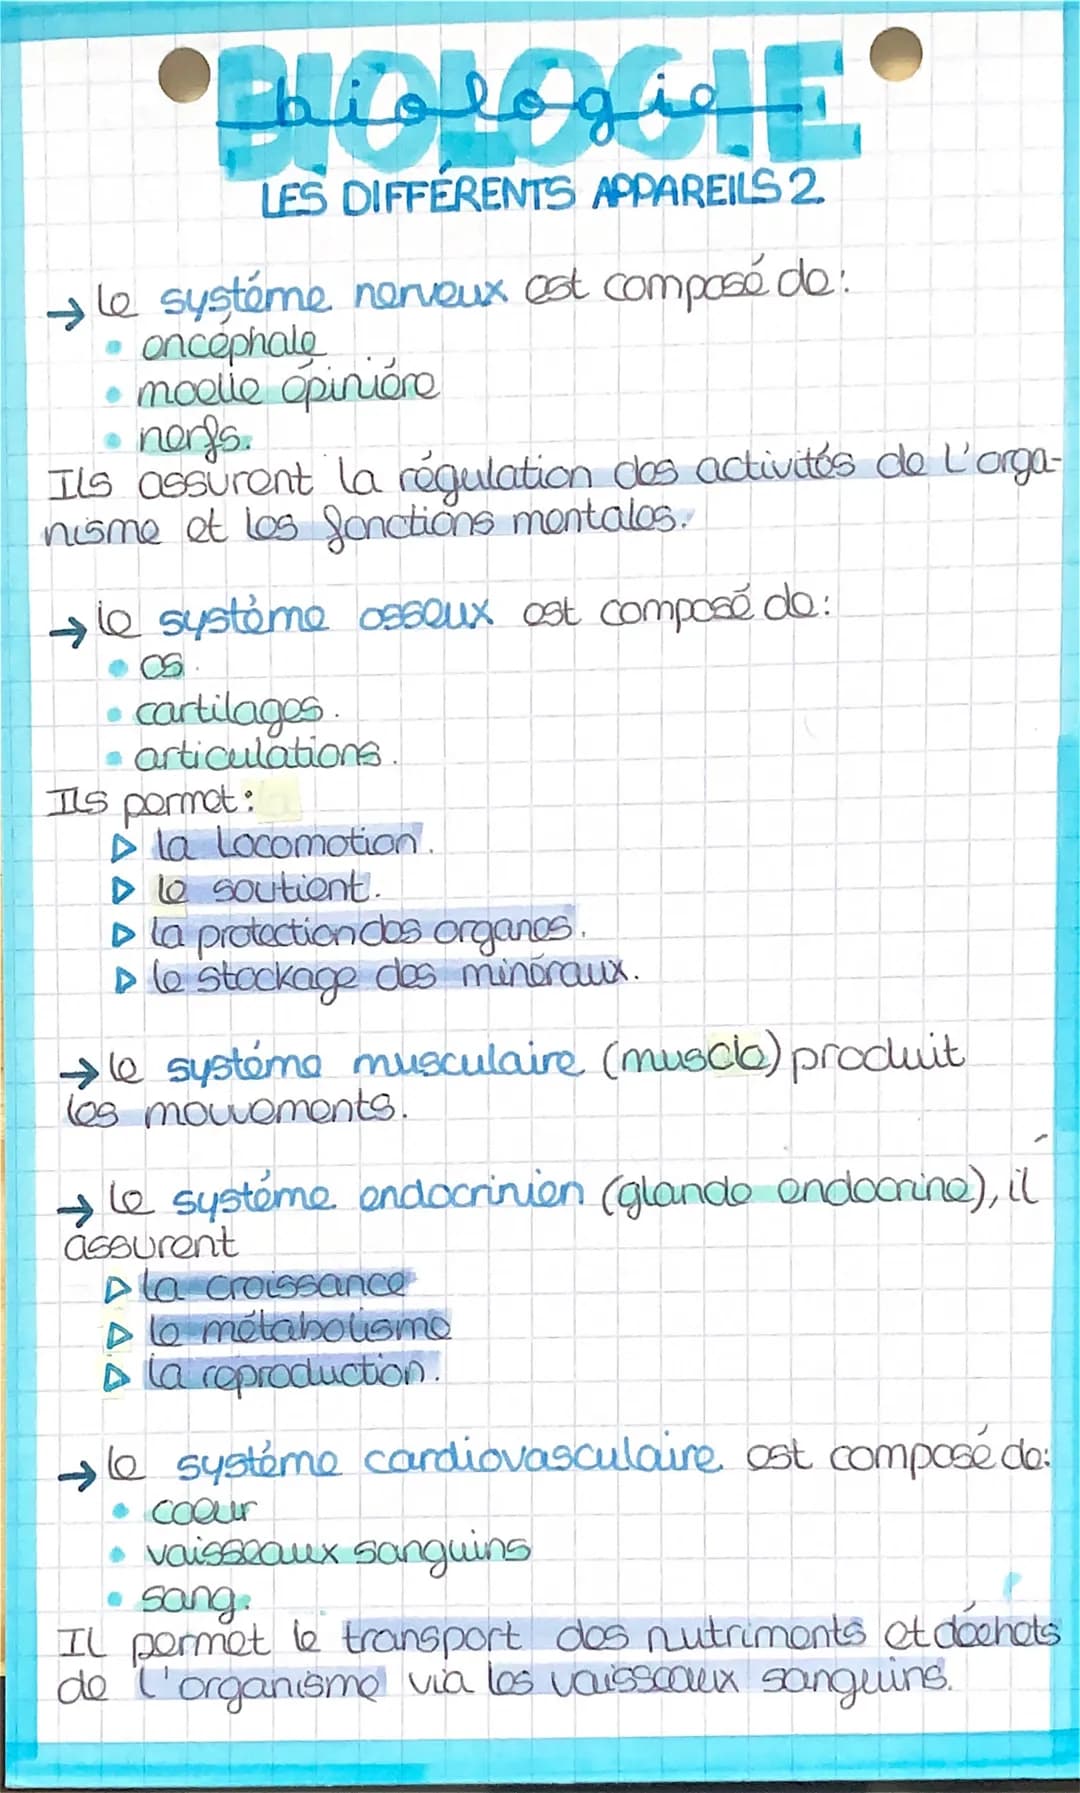 BIOLOGIE
biologie
LES DIFFÉRENTS APPAREILS 2
→ le systéme nerveux est composé de:
• encéphale
• moelle épiniére
• nerfs.
Ils assurent la régulation des activités de l'orga-
nisme et les fonctions mentales.
→ le systéme osseux est composé de:
• os.
• cartilages.
• articulations.
Ils permet:
▷ la locomotion.
▷ le soutient.
▷ la protection des organes.
▷ le stockage des minéraux.
→ le systéme musculaire (muscle) produit
les mouvements.
→ le systéme endocrinien (glande endocrine), il
assurent
▷ la croissance
▷ le métabolisme
▷ la reproduction.
→ le systéme cardiovasculaire est composé de:
• coeur
• vaisseaux sanguins
• sang.
Il permet le transport des nutriments et déchets
de l'organisme via les vaisseaux sanguins.